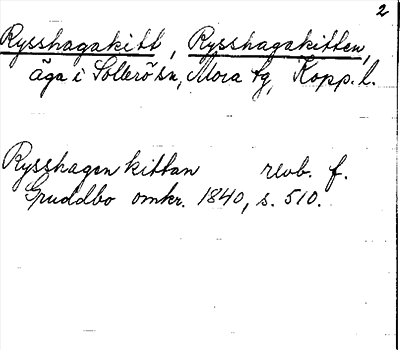 2
Rysshagakitt, Rysshagakitten,
äga i Sollerö sn, Mora tg, Kopp. l.
Rysshagen kittan revb. f.
Gruddbo omkr. 1840, s. 510.